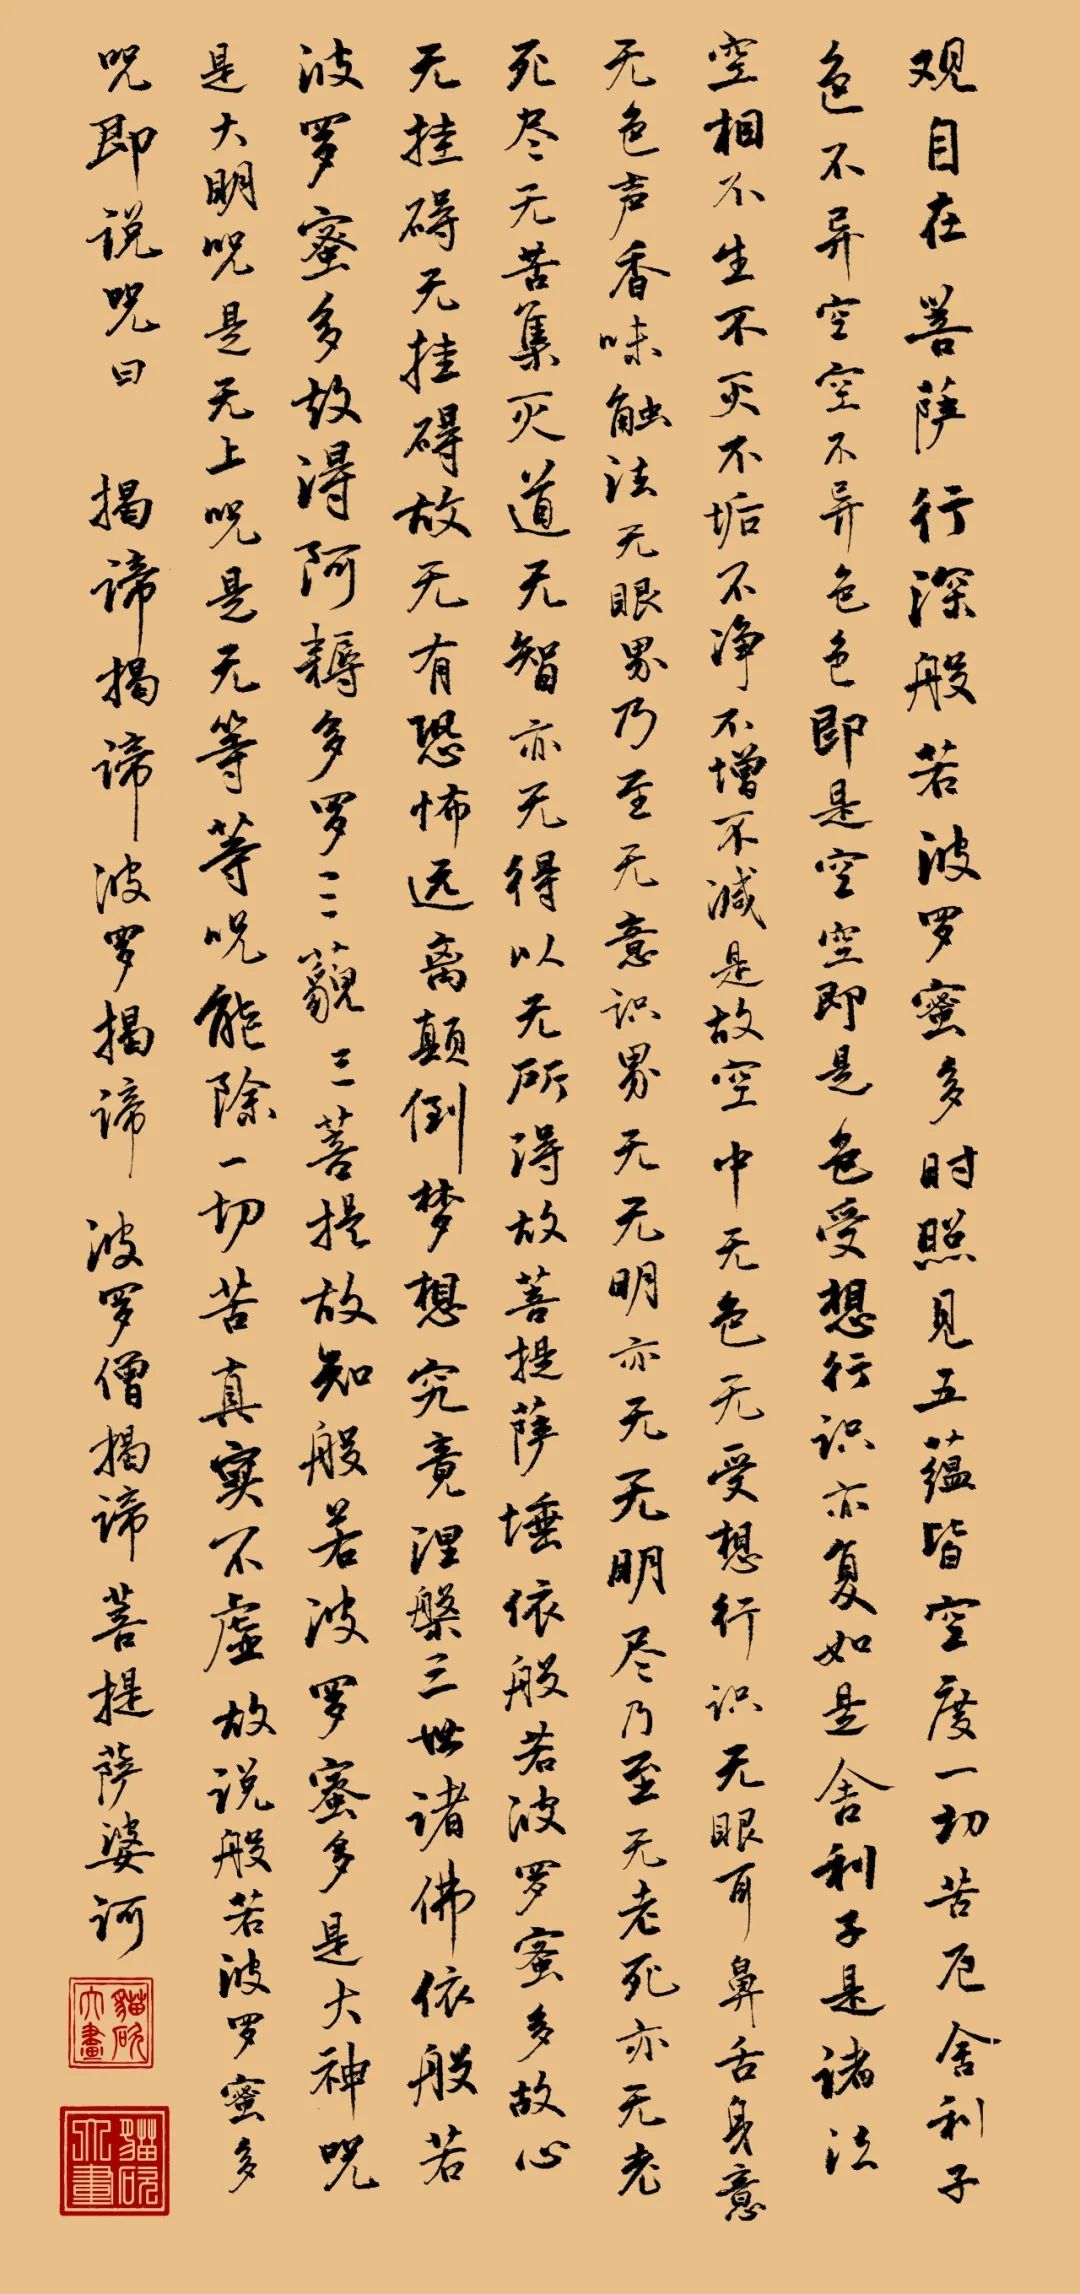 观自在菩萨行深般若波罗蜜多时照见五蕴皆空度一切苦厄舍利子
色不异空空不异色色即是空空即是色受想行识亦复如是舍利子是诸法
空相不生不灭不垢不净不增不减是故空中无色无受想行识无眼耳鼻舌身意
无色声香味触法无眼界乃至无意识界无无明亦无无明尽乃至无老死亦无老
死尽无苦集灭道无智亦无得以无所得故菩提萨埵依般若波罗蜜多故心
无挂碍无挂碍故无有恐怖远离颠倒梦想究竟涅槃三世诸佛依般若
波罗蜜多故得阿耨多罗三藐三菩提故知般若波罗蜜多是大神咒
是大明咒是无上咒是无等等咒能除一切苦真实不虚故说般若波罗蜜多
咒即说咒曰 揭谛揭谛波罗揭谛 波罗僧揭谛菩提萨婆诃